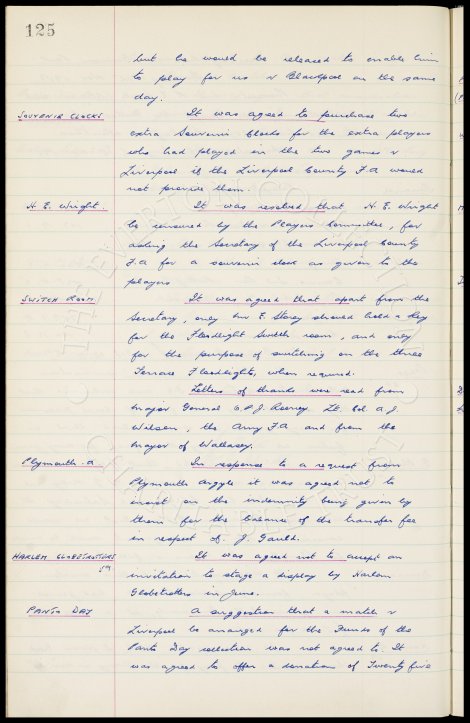 125
but he would be released to enable him
to play for us v Blackpool on the same
day.
SOUVENIR CLOCKS It was agreed to purchase two
extra Souvenir Clocks for the extra players
who had played in the two games v
Liverpool if the Liverpool County F.A would
not provide them.
H. E. Wright. It was resolved that H. E. Wright
be censured by the Players Committee, for
asking the Secretary of the Liverpool County
F.A for a souvenir clock as given to the
players
SWITCH ROOM It was agreed that apart from the
Secretary, only Mr E. Storey should hold a key
for the Floodlight Switch room, and only
for the purpose of switching on the three
Terrace Floodlights, when required.
Letters of thanks were read from
Major General Rooney Lt. Col. A. J.
Wilson, the Army F.A and from the
Mayor of Wallasey.
Plymouth. A In response to a request from
Plymouth Argyle it was agreed not to
insist on the indemnity being given by
them for the balance of the transfer fee
in respect of J. Gauld.
HARLEM GLOBETROTTERS It was agreed not to accept an
invitation to stage a display by Harlem
Globetrotters in June.
PANTO DAY A suggestion that a match v
Liverpool be arranged for the Funds of the
Panto Day collection was not agreed to. It
was agreed to offer a donation of Twenty five